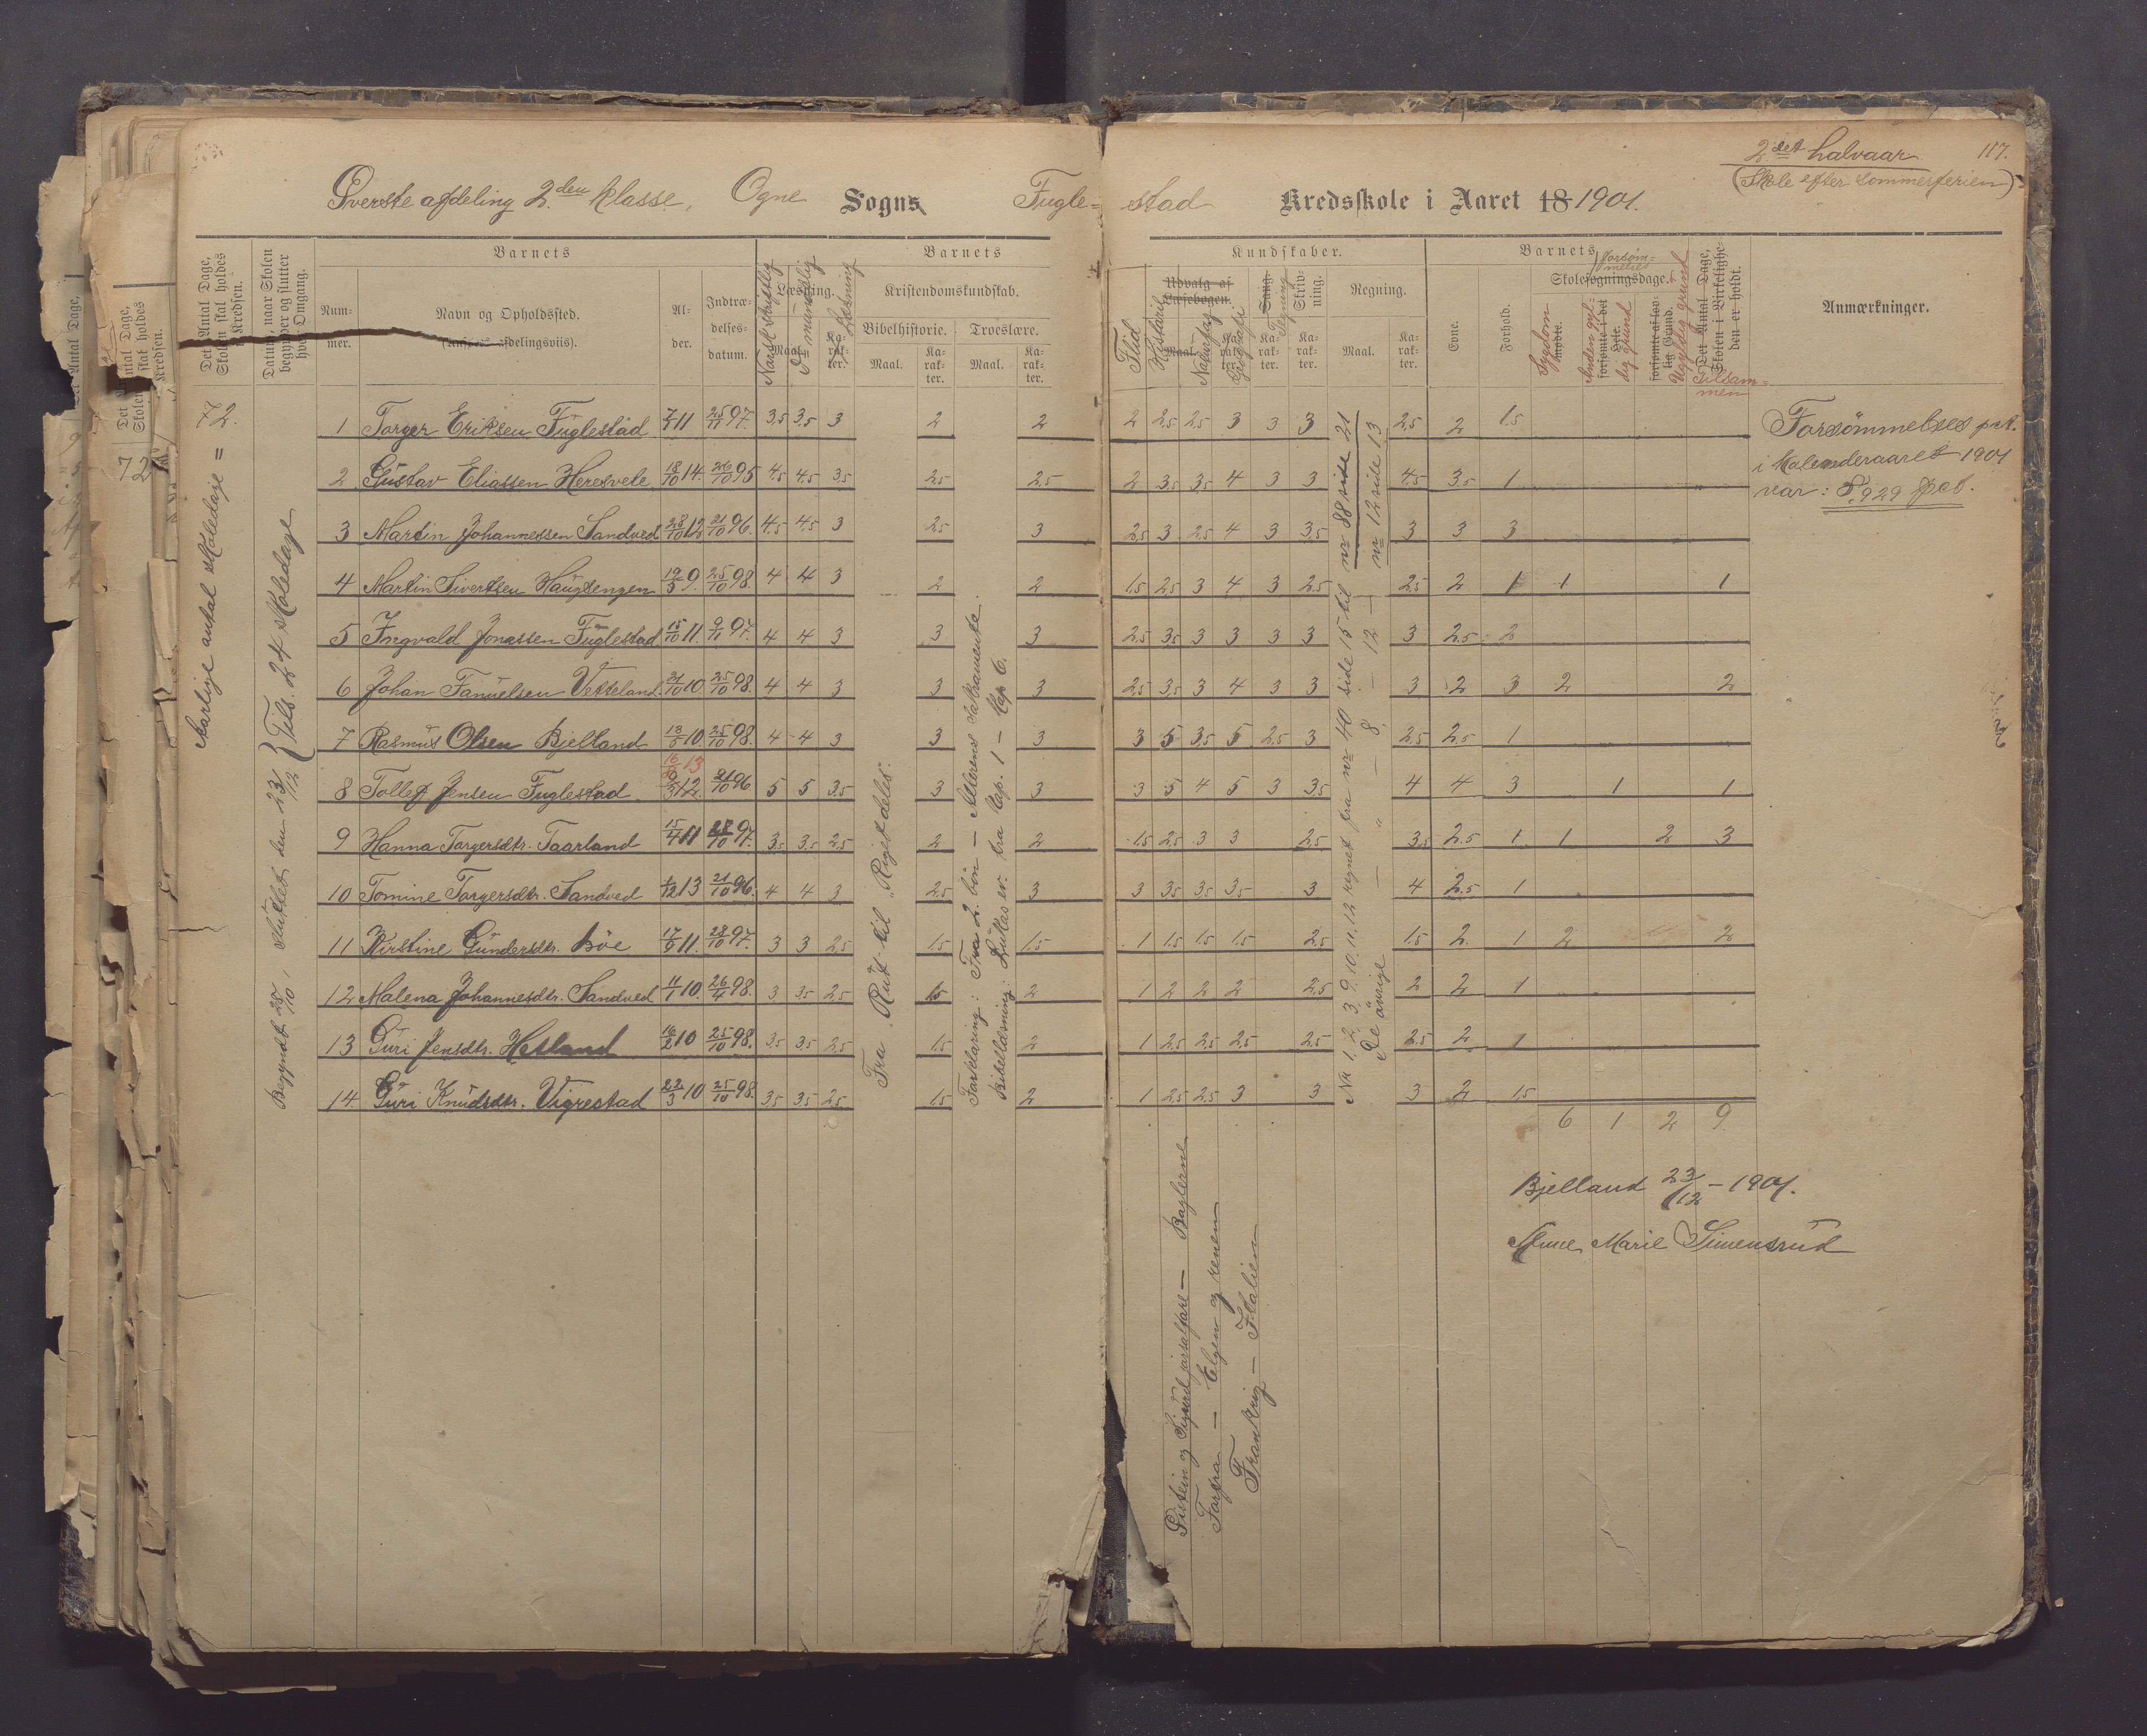 2det halvaar 117.
(Skole efter sommerferien)
Øverste afdeling 2den klasse, Ogne Sogns Fugle= stad Kredsskole i Aaret 18 1901.
Det Antal Dage, Skolen skal holdes i Kredsen.
Datum, naar Skolen begynder og slutter hver Omgang.
Barnets
Nummer.
Navn og Opholdssted.
(Anføres afdelingsviis).
Alder.
Indtrædelsesdatum.
Barnets
Læsning.
Norsk skriftlig
Do = mundtlig
Læsning
Maal.
Karakter.
Kristendomskundskab.
Bibelhistorie.
Troeslære.
Maal.
Karakter.
Maal.
Karakter.
Kundskaber.
Udvalg af Læsebogen.
Flid
Historie
Naturfag
Geografi
Maal.
Karakter.
Sang.
Tegning
Karakter.
Skrivning.
Karakter.
Regning.
Maal.
Karakter.
Barnets
Evne.
Forhold.
Skolesøgningsdage.
Forsømmelses
Sygdom
mødte.
Anden gyldig grund
forsømte i det Hele.
forsømte af lovlig Grund.
Ugyldig grund
Det Antal Dage, Skolen i Virkeligheden er holdt.
Tilsammen
Anmærkninger.
72
aarlige antal skoledage = 72.
Begyndt 25/10, sluttet den 23/12 } Tils. 24 skoledage
1 Torger Eriksen Fuglestad 7/5 11 25/11 97. 3.5 3.5 3 2 2 2 2.5 2.5 3 3 3 2.5 2 1.5
2 Gustav Eliassen Heresvele 18/10 14. 26/10 95 4.5 4.5 3.5 2.5 2.5 2 3.5 3.5 4 3 3 4.5 3.5 1
3 Martin Johannessen Sandved 28/10 12 21/10 96. 4.5 4.5 3 2.5 3 2.5 3 2.5 4 3 3.5 3 3 3
4 Martin Sivertsen Haugsengen 19/3 9. 25/10 98. 4 4 3 2 2 1.5 2.5 3 4 3 2.5 2.5 2 1 1 1
5 Ingvald Jonassen Fuglestad 15/10 11. 9/11 97. 4 4 3 3 3 2.5 3.5 3 3 3 3 3 2.5 2
6 Johan Fanuelsen Vetteland. 21/10 10. 25/10 98. 4 4 3 3 3 2.5 3.5 3 4 3 3 3 2 3 2 2
7 Rasmus Olsen Bjelland 13/5 10. 25/10 98. 4 4 3 3 3 3 5 3.5 5 2.5 3 2.5 2.5 1
8 Tollef Jensen Fuglestad 12. 13 21/10 96 5 5 3.5 3 3 3 5 4 5 3 3.5 4 4 3 1 1
9 Hanna Torgersdtr. Taarland 15/4 11 28/10 97. 3.5 3.5 2.5 2 2 1.5 2.5 3 3 2.5 3.5 2.5 1 1 2 3
10 Tomine Torgersdtr. Sandved 1/12 13 21/10 96. 4 4 3 2.5 3 3 3.5 3.5 3.5 3 4 2.5 1
11 Kirstine Gundersdtr. Böe 17/9 11. 28/10 97. 3 3 2.5 1.5 1.5 1 1.5 1.5 1.5 2.5 1.5 2. 1 2 2
12 Malena Johannesdtr. Sandved 4/1 10. 26/4 98. 3 3.5 2.5 1.5 2 1 2 2 2 2.5 2 2 1
13 Guri Jensdtr. Hetland 16/2 10 25/10 98. 3.5 3.5 2.5 1.5 2 1 2.5 2.5 2.5 2.5 2.5 2 1
14. Guri Knudsdtr. Vigrestad 22/3 10 25/10 98. 3.5 3.5 2.5 1.5 2 1 2.5 2.5 3 3 3 2 1.5
6 1 2 9.
Fra "Rut" til "Riget deles".
Forklaring: Fra 2. bön — Alterens Sakramente.
Bibellæsning: Lukas ev. fra Kap. 1 — Kap 6.
Nr 1. 2. 3. 9. 10. 11. 12 regnet fra nr 40 side 15 til nr 88 side 21
De övrige — " — 8, — 12 — nr 12 side 13
Östein og Sigurd jorsalfare — Baglerne
Torfra — Elgen og renen
Frankrig — Italien
Forsömmelses pct.
i kalenderaaret 1901
var: 8,929 pct.
Bjelland 23/12 - 1901.
Anne Marie Simensrud